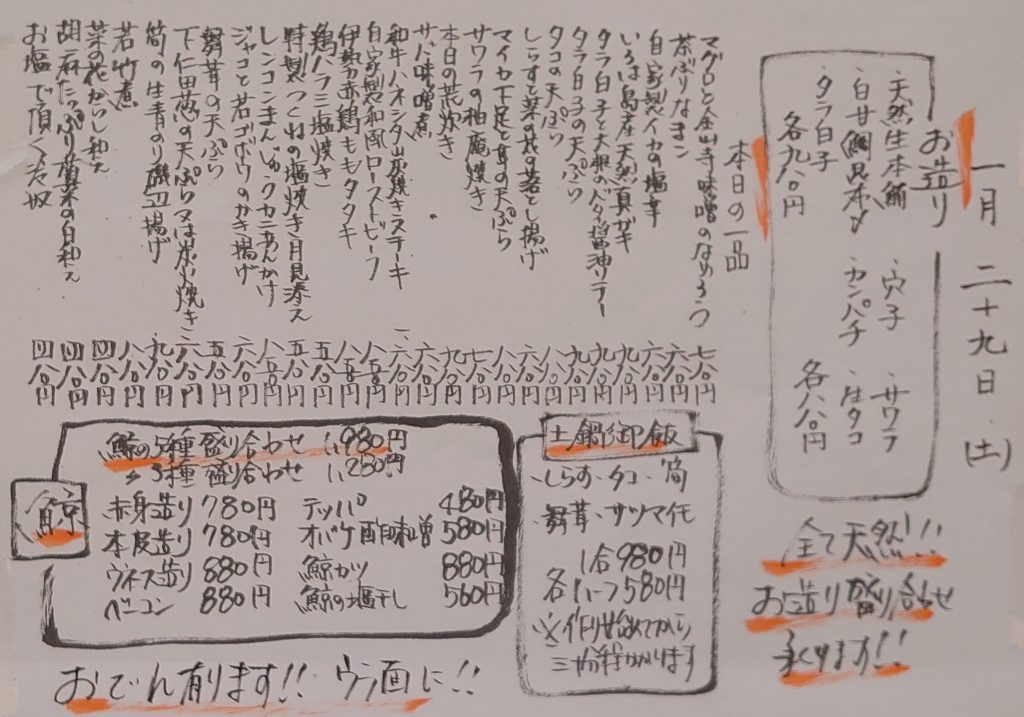 一月二十九日(土)
お造り
・天然生本鮪 ・穴子 ・サワラ
・白甘鯛昆布〆 ・カンパチ ・生タコ
・タラ白子 各八八〇円
各九八〇円
全て天然!!
お造り盛り合せ
承ります!!
本日の一品
マグロと金山寺味噌のなめろう 七八〇円
茶ぶりなまこ 六八〇円
自家製イカの塩辛 六八〇円
いろは島産天然真ガキ 九八〇円
タラ白子と大根バタ醤油ソテー 九八〇円
タラ白子の天ぷら 九八〇円
タコの天ぷら 八八〇円
しらすと菜の花の落とし揚げ 八八〇円
マイカ下足と茸の天ぷら 七八〇円
サワラの柚庵焼き 九八〇円
本日の荒炊き 六八〇円
サバ味噌煮
和牛ハネシタ炭焼きステーキ
自家製和風ローストビーフ
伊勢赤鶏ももタタキ 八五〇円
鶏ハラミ塩焼き 五八〇円
特製つくねの塩焼き月見添え 五八〇円
レンコンまんじゅうカニあんかけ 八五〇円
ジャコと若ゴボウのかき揚げ 六八〇円
舞茸の天ぷら 五八〇円
下仁田葱の天ぷら又は炭火焼き 六八〇円
筍の生青のり磯辺揚げ 九八〇円
若竹煮 八八〇円
菜の花からし和え 四八〇円
胡麻たっぷり菊菜の白和え 四八〇円
お塩で頂くた奴 四八〇円
土鍋御飯
・しらす・タコ・筍
・舞茸・サツマイモ
1合980円
各ハーフ580円
※作り始めてから
三十分程かかります
鯨
鯨の5種盛り合わせ 1,980円
〃3種盛り合わせ 1,280円
赤身造り 780円 テッパ 480円
本皮造り 780円 オバケ酢味噌 580円
ウネス造り 880円 鯨カツ 880円
ベーコン 880円 鯨の塩干し 560円
おでん有ります!! ウラ画に!!